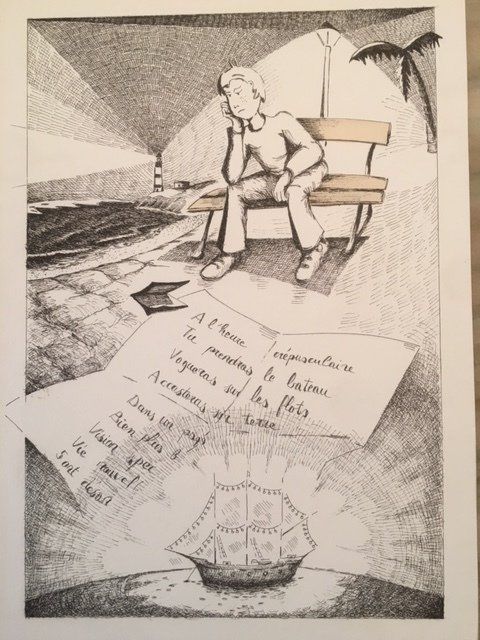 A l'heure crépusculaire
Tu prendras le bateau
Voqueras sur les flots
Accosteras sur terre
Dans un pays
Bien plus
Vision
Vie nouvel
Sont